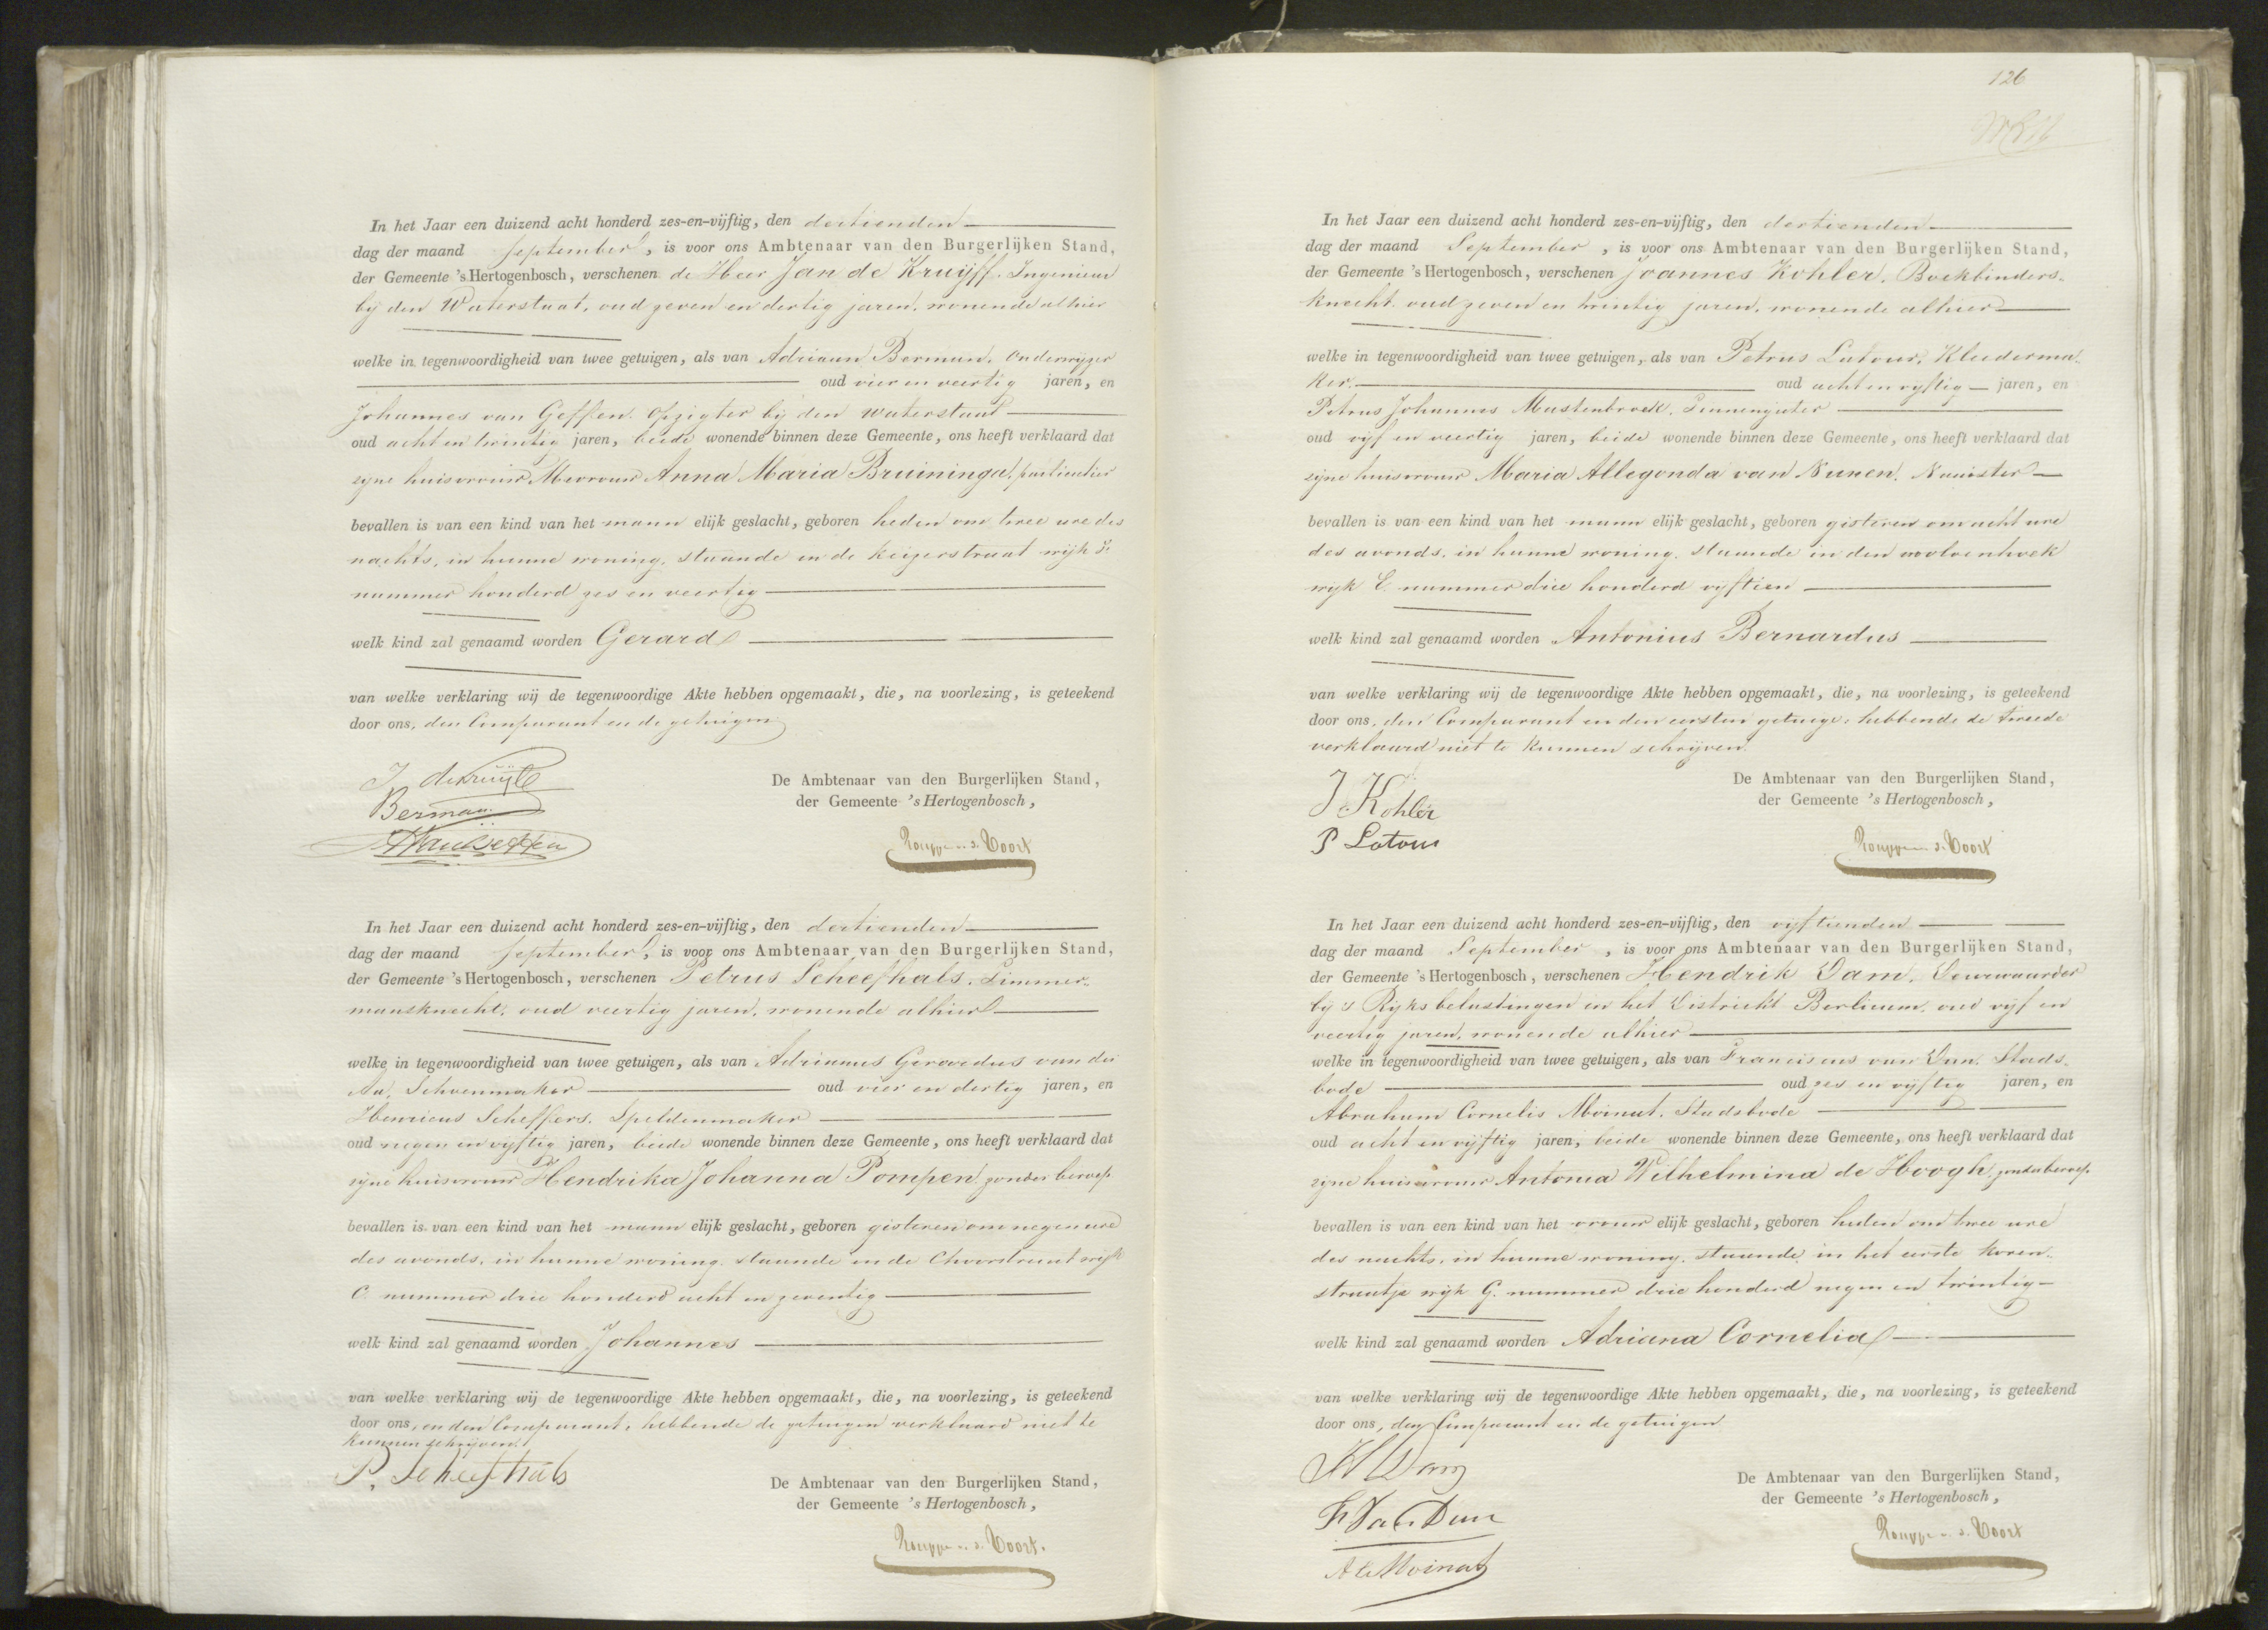 In het Jaar een duizend acht honderd zes-en-vijftig, den dertienden
dag der maand September, is voor ons Ambtenaar van den Burgerlijken Stand,
der Gemeente 's Hertogenbosch, verschenen de Heer Jan de Kruijff, Ingenieur
bij den Waterstaat, oud zeven en dertig jaren, wonende alhier
welke in tegenwoordigheid van twee getuigen, als van Adriaan Berman, Onderwijzer
oud vier en veertig jaren, en
Johannes van Geffen, Opzigter bij den waterstaat
oud acht en twintig jaren, beide wonende binnen deze Gemeente, ons heeft verklaard dat
zijne huisvrouw Mevrouw Anna Maria Bruininga, particulier
bevallen is van een kind van het mann elijk geslacht, geboren heden om twee ure des
nachts, in hunne woning, staande in de Keizerstraat wijk
nummer honderd zes en veertig
welk kind zal genaamd worden Gerard
van welke verklaring wij de tegenwoordige Akte hebben opgemaakt, die, na voorlezing, is geteekend
door ons, den Comparant en de getuigen
J. de Kruijff
Berman
J van Geffen
De Ambtenaar van den Burgerlijken Stand,
der Gemeente 's Hertogenbosch,
Rouppe v. d. Voort
In het Jaar een duizend acht honderd zes-en-vijftig, den dertienden
dag der maand September, is voor ons Ambtenaar van den Burgerlijken Stand,
der Gemeente 's Hertogenbosch, verschenen Petrus Scheefhals, Timmer-
mansknecht, oud veertig jaren, wonende alhier
welke in tegenwoordigheid van twee getuigen, als van Adrianus Gerardus van der
Aa, Schoenmaker oud vier en dertig jaren, en
Henricus Scheffers, Speldenmaker
oud negen en vijftig jaren, beide wonende binnen deze Gemeente, ons heeft verklaard dat
zijne huisvrouw Hendrika Johanna Pompen, zonder beroep
bevallen is van een kind van het mann elijk geslacht, geboren gisteren om negen ure
des avonds, in hunne woning, staande in de Choorstraat wijk
C. nummer drie honderd acht en zeventig
welk kind zal genaamd worden Johannes
van welke verklaring wij de tegenwoordige Akte hebben opgemaakt, die, na voorlezing, is geteekend
door ons, en den Comparant, hebbende de getuigen verklaard niet te
kunnen schrijven.
P. Scheefhals
De Ambtenaar van den Burgerlijken Stand,
der Gemeente 's Hertogenbosch,
Rouppe v. d. Voort.
126
In het Jaar een duizend acht honderd zes-en-vijftig, den dertienden
dag der maand September, is voor ons Ambtenaar van den Burgerlijken Stand,
der Gemeente 's Hertogenbosch, verschenen Joannes Kohler, Boekbinders-
knecht, oud zeven en twintig jaren, wonende alhier
welke in tegenwoordigheid van twee getuigen, als van Petrus Latour, Kleederma-
ker. oud acht en vijftig jaren, en
Petrus Johannes Mastenbroek, Tinnengieter
oud vijf en veertig jaren, beide wonende binnen deze Gemeente, ons heeft verklaard dat
zijne huisvrouw Maria Allegonda van Nunen, Naaister
bevallen is van een kind van het mann elijk geslacht, geboren gisteren om acht ure
des avonds, in hunne woning, staande in den wolvenhoek
wijk E. nummer drie honderd vijftien
welk kind zal genaamd worden Antonius Bernardus
van welke verklaring wij de tegenwoordige Akte hebben opgemaakt, die, na voorlezing, is geteekend
door ons, den Comparant en den eersten getuige, hebbende de tweede
verklaard niet te kunnen schrijven.
J Kohler
P Latour
De Ambtenaar van den Burgerlijken Stand,
der Gemeente 's Hertogenbosch,
Rouppe v. d. Voort
In het Jaar een duizend acht honderd zes-en-vijftig, den vijftienden
dag der maand September, is voor ons Ambtenaar van den Burgerlijken Stand,
der Gemeente 's Hertogenbosch, verschenen Hendrik Dam, Deurwaarder
bij 's Rijks belastingen in het Distrikt Berlicum, oud vijf en
veertig jaren, wonende alhier
welke in tegenwoordigheid van twee getuigen, als van Franciscus van Dun, Stads-
bode oud zes en vijftig jaren, en
Abraham Cornelis Moinat, Stadsbode
oud acht en vijftig jaren, beide wonende binnen deze Gemeente, ons heeft verklaard dat
zijne huisvrouw Antonia Wilhelmina de Hoogh, zonder beroep
bevallen is van een kind van het vrouw elijk geslacht, geboren heden om twee ure
des nachts, in hunne woning, staande in het eerste Koren-
straatje wijk G. nummer drie honderd negen en twintig
welk kind zal genaamd worden Adriana Cornelia
van welke verklaring wij de tegenwoordige Akte hebben opgemaakt, die, na voorlezing, is geteekend
door ons, den Comparant en de getuigen
H Dam
F. Van Dun
A C Moinat
De Ambtenaar van den Burgerlijken Stand,
der Gemeente 's Hertogenbosch,
Rouppe v. d. Voort